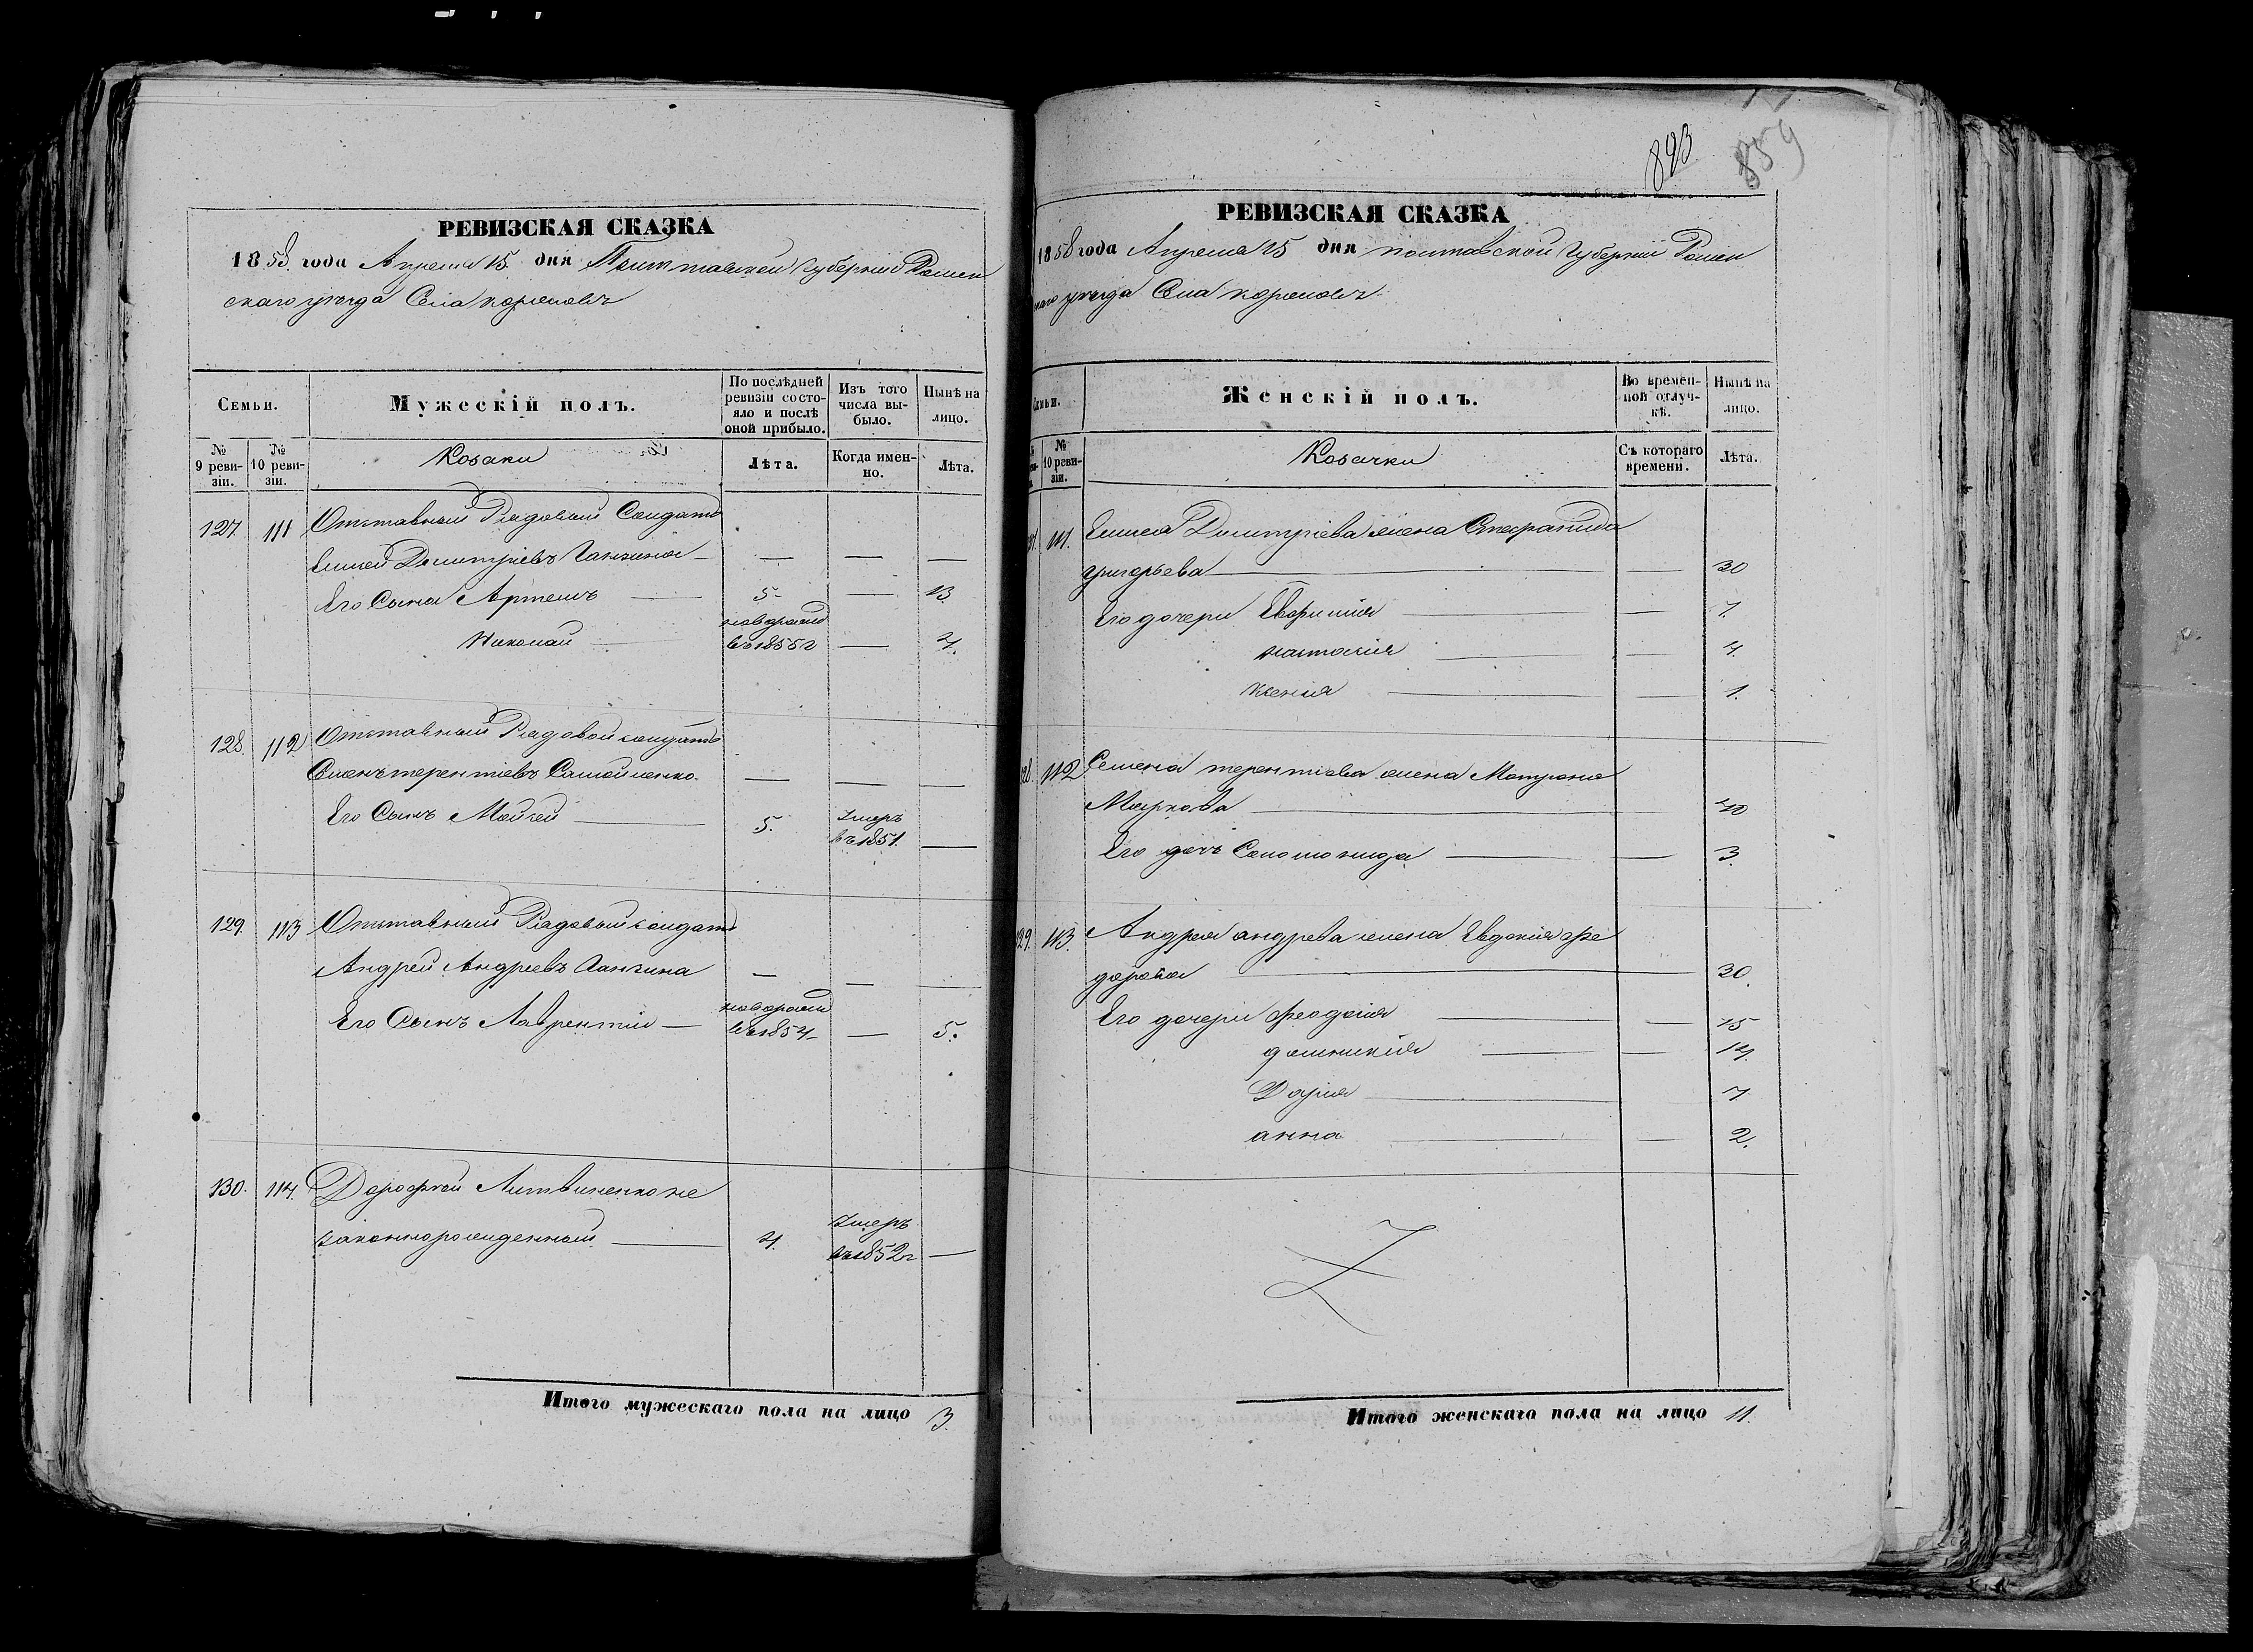 РЕВИЗСКАЯ СКАЗКА
1858 года Апреля 15 дня Полтавской Губернии Ромен
скаго уезда Села
Семьи.
Мужескій полъ.
По послѣдней ревизіи состояло и послѣ оной прибыло.
Изъ того числа выбыло.
Нынѣ на лицо.
№ 9 ревизіи.
№ 10 ревизіи.
Козаки
Лѣта.
Когда именно.
Лѣта.
127. 111 Отставный Рядовый Солдатъ
Дмитріевъ — — —
Его Сына Артемъ — 5 — 13.
Николай — новорожд въ 1855г — 4.
128. 112 Отставный Рядовой солдатъ
Семенъ терентіевъ Самойленко. — — —
Его Сынъ Мойсей — 5. Умеръ въ 1851. —
129. 113 Отставный Рядовый солдатъ
Андрей Андреевъ — — —
Его Сынъ Лаврентій — новорожд въ 1854 — 5.
130. 114. Дорофей Литвиненко не
законнорожденный — 4. Умеръ въ 1852г —
Итого мужескаго пола на лицо 3.
893
859
РЕВИЗСКАЯ СКАЗКА
1858 года Апреля 15 дня полтавской Губерніи Ромен
скаго уезда Села
Семьи.
Женскій полъ.
Во временной отлучкѣ.
Нынѣ на лицо.
№ 10 ревизіи.
Козачки
Съ котораго времени.
Лѣта.
111. Дмитріева жена Степанида
григорьева — — 30
Его дочери Евфимія — — 7.
настасія — — 4.
Ксенія — — 1.
128. 112 Семена терентіева жена Мотрона
Маркова — 40
Его дочь Соломонида — — 3.
129. 113. Андрея андрева жена Евдокія фе
дорова — 30.
Его дочери феодосія — — 15
домникія — — 14.
Дарія — 7
анна — — 2.
Итого женскаго пола на лицо 11.